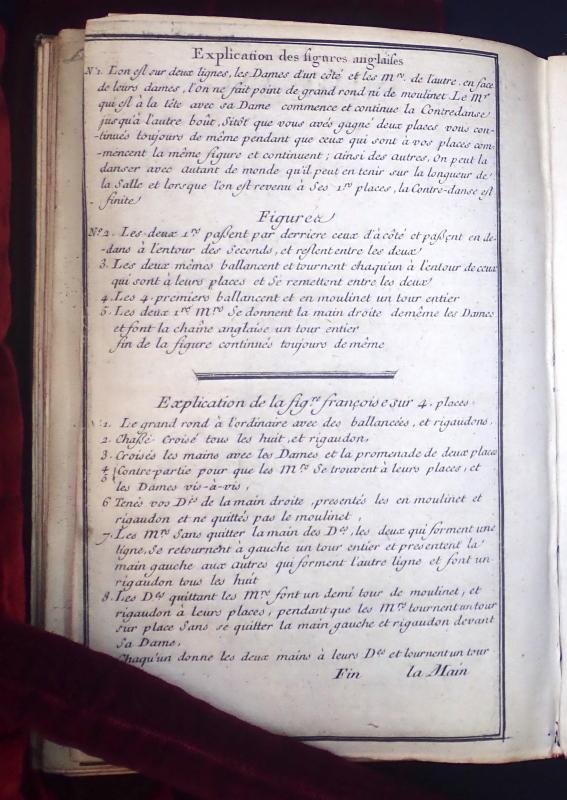 Explication des figures anglaises
N.º1. L'on est sur deux lignes, les Dames d'un côté et les Mrs. de l'autre, en face
de leurs dames, l'on ne fait point de grand rond ni de moulinet. Le Mr
qui est à la tête avec sa Dame commence et continue la Contredanse
jusqu'à l'autre boût, Sitôt que vous avés gagné deux places vous con-
-tinués toujours de même pendant que ceux qui sont à vos places com-
-mencent la même figure et continuent ; ainsi des autres, On peut la
danser avec autant de monde qu'il peut en tenir sur la longueur de
la Salle et lorsque l'on est revenu à Ses 1res places, la Contre-danse est
finite
Figures
Nº2. Les deux 1rs passent par derriere ceux d'à côté et passent en de-
-dans à l'entour des Seconds, et restent entre les deux
3. Les deux mêmes ballancent et tournent chaqu'un à l'entour de ceux
qui sont à leurs places et Se remettent entre les deux
4. Les 4 premiers ballancent et en moulinet un tour entier
5. Les deux 1rs Mrs Se donnent la main droite demême les Dames
et font la chaîne anglaise un tour entier
fin de la figure continués toujours de même
Explication de la figre françoise sur 4. places
1. Le grand rond à l'ordinaire avec des ballancées, et rigaudons,
2. Chassé Croisé tous les huit, et rigaudon,
3. Croisés les mains avec les Dames et la promenade de deux places
4 5 Contre-partie pour que les Mrs Se trouvent à leurs places, et
les Dames vis-à-vis,
6 Tenés vos Des de la main droite, presentés les en moulinet et
rigaudon et ne quittés pas le moulinet,
7. Les Mrs Sans quitter la main des Des, les deux qui forment une
ligne, Se retournent à gauche un tour entier et presentent la
main gauche aux autres qui forment l'autre ligne et font un
rigaudon tous les huit
8. Les Des quittant les Mrs font un demi tour de moulinet, et
rigaudon à leurs places, pendant que les Mrs tournent un tour
sur place Sans se quitter la main gauche et rigaudon devant
Sa Dame,
Chaqu'un donne les deux mains à leurs Des et tournent un tour
Fin la Main